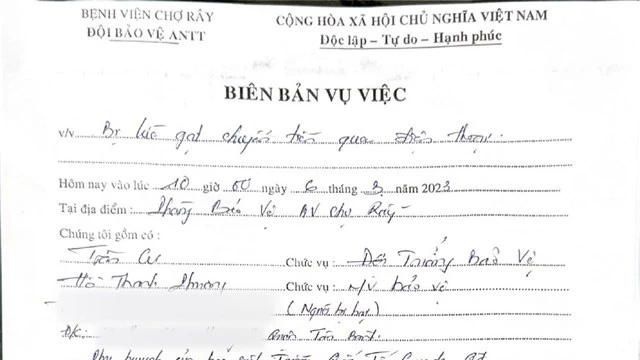 BỆNH VIỆN CHỢ RẪY
CỘNG HÒA XÃ HỘI CHỦ NGHĨA VIỆT NAM
ĐỘI BẢO VỆ ANTT
Độc lập – Tự do – Hạnh phúc
BIÊN BẢN VỤ VIỆC
v/v Bị lừa gạt chuyển tiền qua điện thoại.
Hôm nay vào lúc 10 giờ 00 ngày 6 tháng 3 năm 2023
Tại địa điểm : Phòng Bảo Vệ BV Chợ Rẫy
Chúng tôi gồm có :
Trần Chức vụ : Đội Trưởng Bảo Vệ
Hồ Thanh Chức vụ : N/V bảo vệ
(Người bị hại)
Đ/c: Quận Tân Bình.
Phụ huynh của